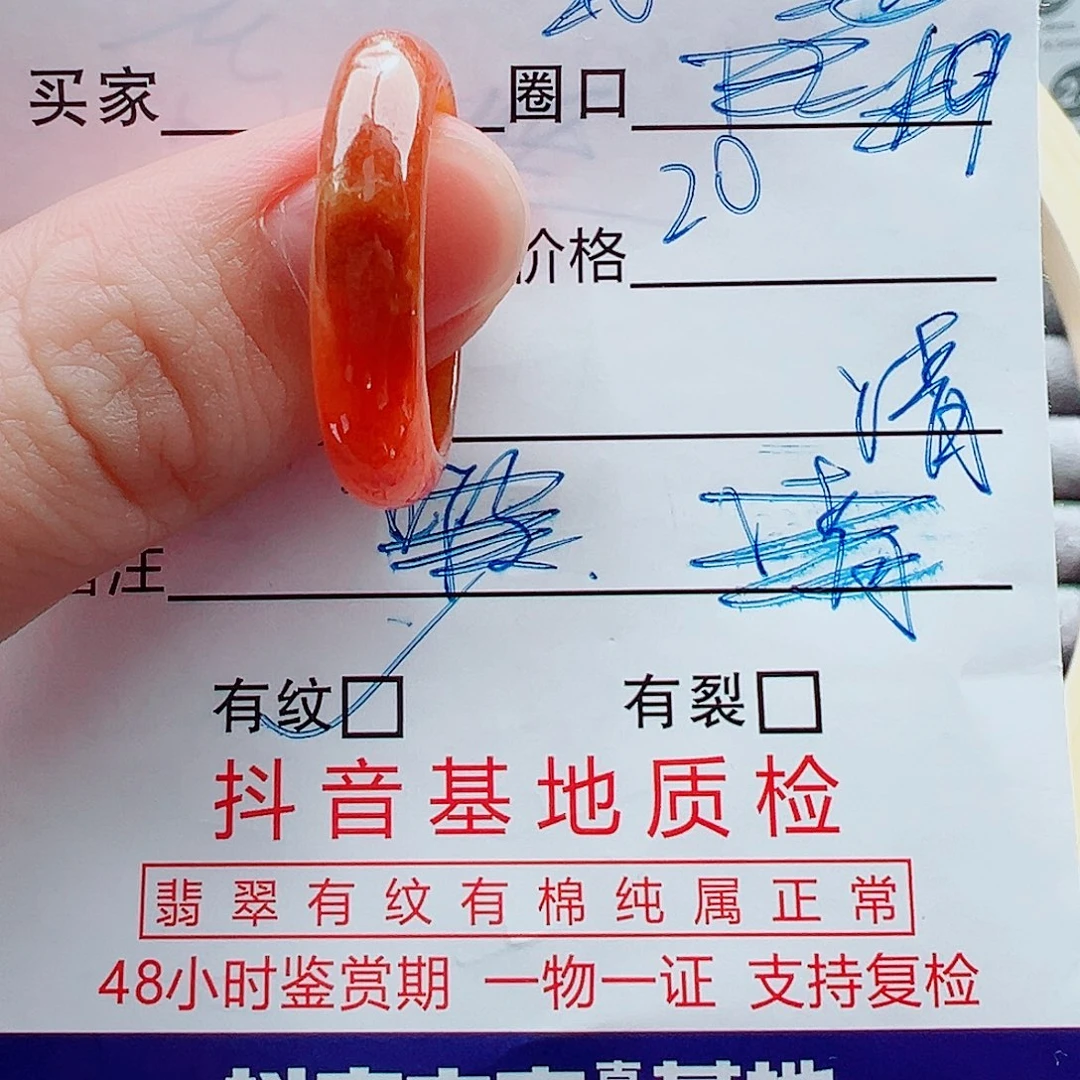 买家 圈口
20
价格
清
注
有纹 有裂
抖音基地质检
翡翠有纹有棉纯属正常
48小时鉴赏期 一物一证 支持复检